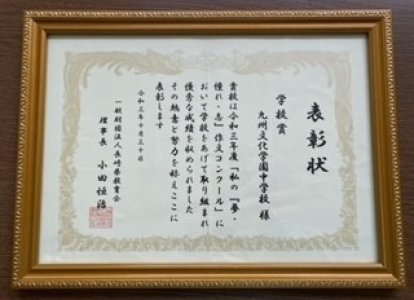 表彰状
学校賞
九州文化学園中学校 様
貴校は令和三年度「私の『夢・
憧れ・志』作文コンクール」に
おいて学校をあげて取り組まれ
優秀な成績を収められました
その熱意と努力を称えここに
表彰します
令和三年十月三十日
一般財団法人長崎県教育会
理事長 小田恒治